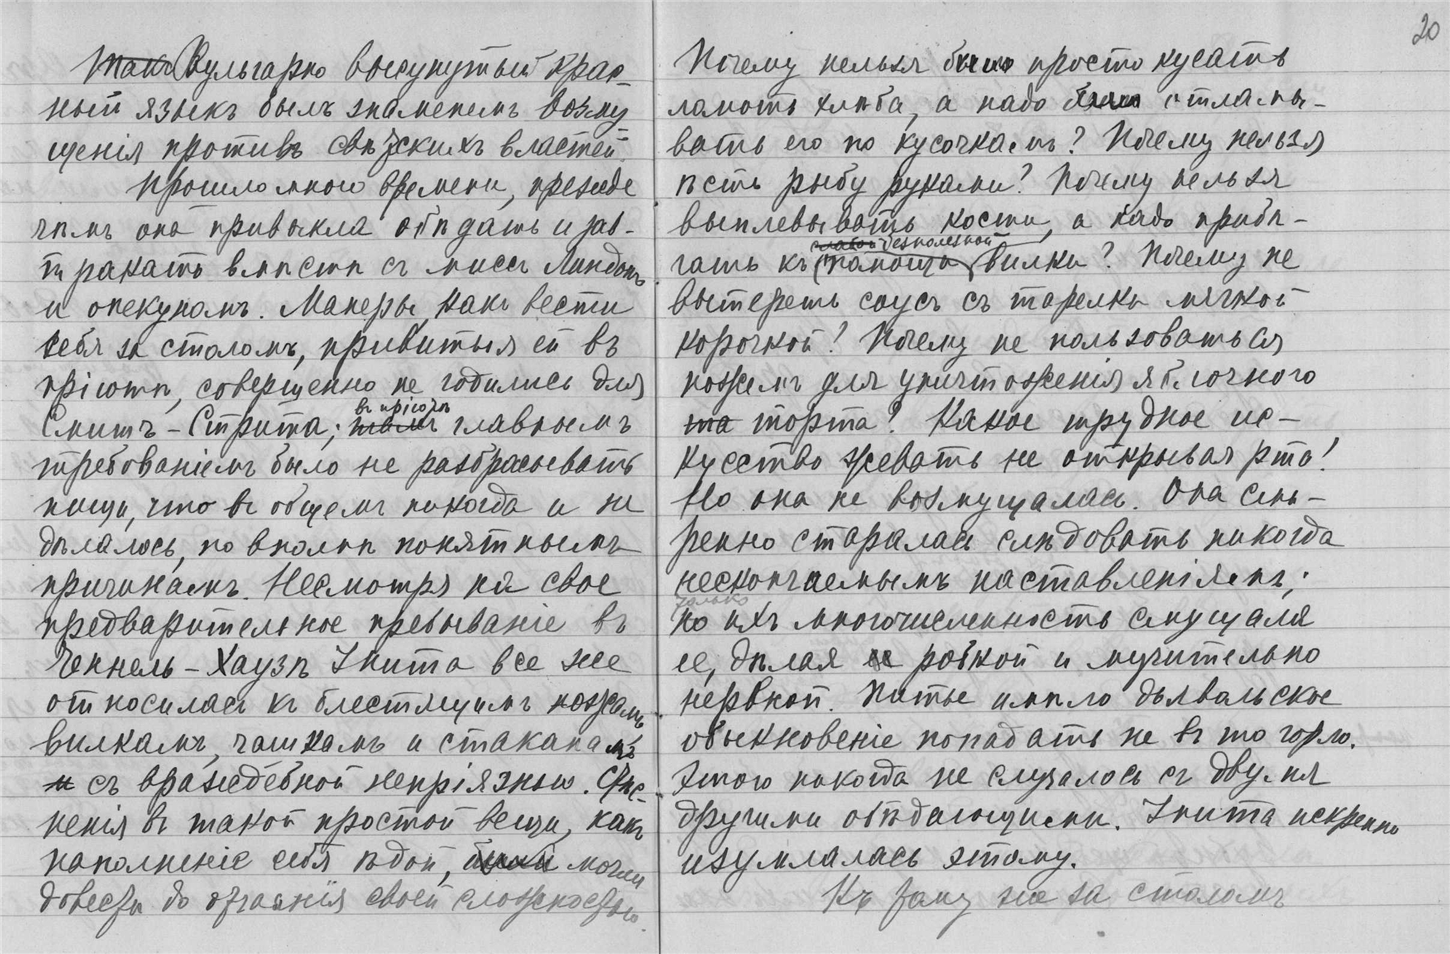 Вульгарно высунутый крас-
ный языкъ былъ знаменемъ возму
щенія противъ свѣтскихъ властей.
Прошло много времени, прежде
чѣмъ она привыкла обѣдать и зав-
тракать вмѣстѣ съ миссъ Линдонъ
и опекуномъ. Манеры, какъ вести
себя за столомъ, привитыя ей въ
пріютѣ, совершенно не годились для
Смитъ-Стрита; въ пріютѣ главнымъ
требованіемъ было не разбрасывать
пищи, что въ общемъ никогда и не
дѣлалось, по вполнѣ понятнымъ
причинамъ. Несмотря на свое
предварительное пребываніе въ
Ченнель-Хаузѣ Унита все же
относилась къ блестящимъ ножамъ
вилкамъ, чашкамъ и стаканамъ
съ враждебной непріязнью. Стѣс-
ненія въ такой простой вещи, какъ
наполненіе себя ѣдой, могли
довести до отчаянія своей сложностью.
20
Почему нельзя было просто кусать
ломоть хлѣба, а надо отламы-
вать его по кусочкамъ? Почему нельзя
ѣсть рыбу руками? Почему нельзя
выплевывать кости, а надо прибѣ-
безполезной
гать къ помощи вилки? Почему не
вытереть соусъ съ тарелки мягкой
корочкой? Почему не пользоваться
ножемъ для уничтоженія яблочнаго
та торта? Какое трудное ис-
кусство жевать не открывая рта!
Но она не возмущалась. Она сми-
ренно старалась слѣдовать никогда
нескончаемымъ наставленіямъ;
только
но ихъ многочисленность смущала
ее, дѣлая робкой и мучительно
нервной. Питье имѣло дьявольское
обыкновеніе попадать не въ то горло.
Этого никогда не случалось съ двумя
другими обѣдающими. Унита искренно
изумлялась этому.
Къ тому же за столомъ